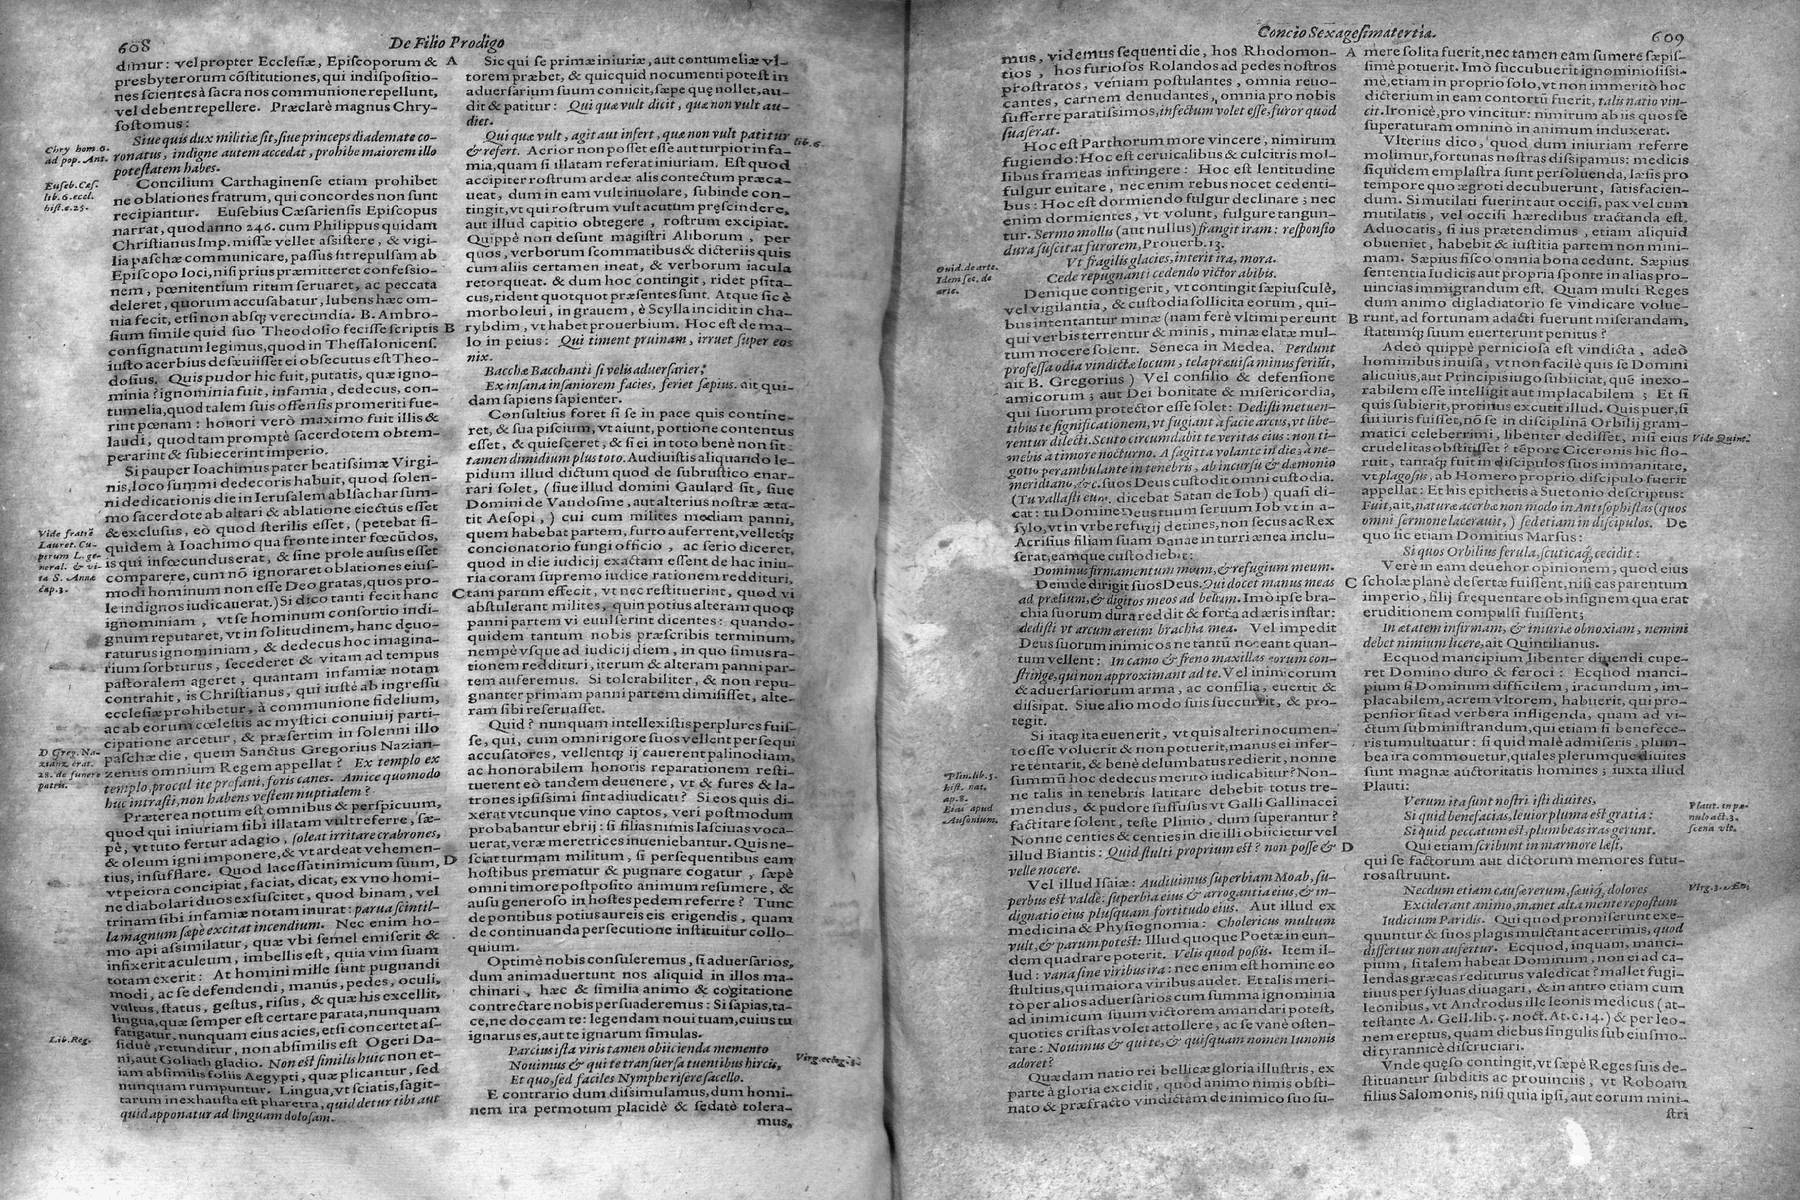 608
De Filio Prodigo
dimur: vel propter Ecclesiæ, Episcoporum &
presbyterorum cōstitutiones, qui indispositio-
nes scientes à sacra nos communione repellunt,
vel debent repellere. Præclarè magnus Chry-
sostomus:
Siue quis dux militiæ sit, siue princeps diademate co-
ronatus, indigne autem accedat, prohibe maiorem illo
potestatem habes.
Concilium Carthaginense etiam prohibet
ne oblationes fratrum, qui concordes non sunt
recipiantur. Eusebius Cæsariensis Episcopus
narrat, quod anno 246. cum Philippus quidam
Christianus Imp. missæ vellet assistere, & vigi-
lia paschæ communicare, passus sit repulsam ab
Episcopo loci, nisi prius præmitteret confessio-
nem, pœnitentium ritum seruaret, ac peccata
deleret, quorum accusabatur, lubens hæc om-
nia fecit, etsi non absq; verecundia. B. Ambro-
sium simile quid suo Theodosio fecisse scriptis
consignatum legimus, quod in Thessalonicens.
iusto acerbius desæuiisset ei obsecutus est Theo-
dosius. Quis pudor hic fuit, putatis, quæ igno-
minia? ignominia fuit, infamia, dedecus, con-
tumelia, quod talem suis offensis promeriti fue-
rint pœnam: honori verò maximo fuit illis &
laudi, quod tam promptè sacerdotem obtem-
perarint & subiecerint imperio.
Si pauper Ioachimus pater beatissimæ Virgi-
nis, loco summi dedecoris habuit, quod solen-
ni dedicationis die in Ierusalem ab Issachar sum-
mo sacerdote ab altari & ablatione eiectus esset
& exclusus, eò quod sterilis esset, (petebat si-
quidem à Ioachimo qua fronte inter fœcūdos,
is qui infœcundus erat, & sine prole ausus esset
comparere, cum nō ignoraret oblationes eius-
modi hominum non esse Deo gratas, quos pro-
le indignos iudicauerat.) Si dico tanti fecit hanc
ignominiam, vt se hominum consortio indi-
gnum reputaret, vt in solitudinem, hanc deuo-
raturus ignominiam, & dedecus hoc imagina-
rium sorbturus, secederet & vitam ad tempus
pastoralem ageret, quantam infamiæ notam
contrahit, is Christianus, qui iustè ab ingressu
ecclesiæ prohibetur, à communione fidelium,
ac ab eorum cœlestis ac mystici conuiuij parti-
cipatione arcetur, & præsertim in solenni illo
paschæ die, quem Sanctus Gregorius Nazian-
zenus omnium Regem appellat? Ex templo ex
templo, procul ite profani, foris canes. Amice quomodo
huc intrasti, non habens vestem nuptialem?
Præterea notum est omnibus & perspicuum,
quod qui iniuriam sibi illatam vult referre, sæ-
pè, vt tuto fertur adagio, soleat irritare crabrones,
& oleum igni imponere, & vt ardeat vehemen-
tius, insufflare. Quod lacessat inimicum suum,
vt peiora concipiat, faciat, dicat, ex vno homi-
ne diabolari duos exsuscitet, quod binam, vel
trinam sibi infamiæ notam inurat: parua scintil-
la magnum sæpè excitat incendium. Nec enim ho-
mo api assimilatur, quæ vbi semel emiserit &
infixerit aculeum, imbellis est, quia vim suam
totam exerit: At homini mille sunt pugnandi
modi, ac se defendendi, manus, pedes, oculi,
vultus, status, gestus, risus, & quæ his excellit,
lingua, quæ semper est certare parata, nunquam
fatigatur, nunquam eius acies, etsi concertet as-
siduè, retunditur, non absimilis est Ogeri Da-
ni, aut Goliath gladio. Non est similis huic non et-
iam absimilis foliis Aegypti, quæ plicantur, sed
nunquam rumpuntur. Lingua, vt sciatis, sagit-
tarum inexhausta est pharetra, quid detur tibi aut
quid apponatur ad linguam dolosam.
Chry hom. 6.
ad pop. Ant.
Euseb. Cæs.
lib. 6. eccl.
hist. c. 25.
Vide fratrē
Lauret. Cu-
pirum L. ge-
neral. & vi-
ta S. Annæ
cap. 3.
D Greg. Na-
zianz. orat.
28. de funere
patris.
Lib. Reg.
A
B
C
D
Sic qui se primæ iniuriæ, aut contumeliæ vl-
torem præbet, & quicquid nocumenti potest in
aduersarium suum coniicit, sæpe quę nollet, au-
dit & patitur: Qui quæ vult dicit, quæ non vult au-
diet.
Qui quæ vult, agit aut infert, quæ non vult patitur
& refert. Acrior non posset esse aut turpior infa-
mia, quam si illatam referat iniuriam. Est quod
accipiter rostrum ardeæ alis contectum præca-
ueat, dum in eam vult inuolare, subinde con-
tingit, vt qui rostrum vult acutum prescindere,
aut illud capitio obtegere, rostrum excipiat.
Quippè non desunt magistri Aliborum, per
quos, verborum scommatibus & dicteriis quis
cum aliis certamen ineat, & verborum iacula
retorqueat. & dum hoc contingit, ridet psita-
cus, rident quotquot præsentes sunt. Atque sic è
morbo leui, in grauem, è Scylla incidit in cha-
rybdim, vt habet prouerbium. Hoc est de ma-
lo in peius: Qui timent pruinam, irruet super eos
nix.
Bacchæ Bacchanti si velis aduersarier,
Ex insana insaniorem facies, feriet sæpius. ait qui-
dam sapiens sapienter.
Consultius foret si se in pace quis contine-
ret, & sua piscium, vt aiunt, portione contentus
esset, & quiesceret, & si ei in toto benè non sit
tamen dimidium plus toto. Audiuistis aliquando le-
pidum illud dictum quod de subrustico enar-
rari solet, (siue illud domini Gaulard sit, siue
Domini de Vandosme, aut alterius nostræ æta-
tit Aesopi,) cui cum milites modiam panni,
quem habebat partem, furto auferrent, velletq;
concionatorio fungi officio, ac serio diceret,
quod in die iudicij exactam essent de hac iniu-
ria coram supremo iudice rationem reddituri,
tam parum effecit, vt nec restituerint, quod vi
abstulerant milites, quin potius alteram quoq;
panni partem vi euulserint dicentes: quando-
quidem tantum nobis præscribis terminum,
nempè vsque ad iudicij diem, in quo simus ra-
tionem reddituri, iterum & alteram panni par-
tem auferemus. Si tolerabiliter, & non repu-
gnanter primam panni partem dimisisset, alte-
ram sibi reseruasset.
Quid? nunquam intellexistis perplures fuis-
se, qui, cum omni rigore suos vellent persequi
accusatores, vellentq; ij cauerent palinodiam,
ac honorabilem honoris reparationem resti-
tuerent eò tandem deuenere, vt & fures & la-
trones ipsissimi sint adiudicati? Si eos quis di-
xerat vtcunque vino captos, veri postmodum
probabantur ebrij: si filias nimis lasciuas voca-
uerat, veræ meretrices inueniebantur. Quis ne-
sciat turmam militum, si persequentibus eam
hostibus prematur & pugnare cogatur, sæpè
omni timore postposito animum resumere, &
ausu generoso in hostes pedem referre? Tunc
de pontibus potius aureis eis erigendis, quam
de continuanda persecutione instituitur collo-
quium.
Optimè nobis consuleremus, si aduersarios,
dum animaduertunt nos aliquid in illos ma-
chinari, hæc & similia animo & cogitatione
contrectare nobis persuaderemus: Si sapias, ta-
ce, ne doceam te: legendam noui tuam, cuius tu
ignarus es, aut te ignarum simulas.
Parcius ista viris tamen obiicienda memento
Nouimus & qui te transuersa tuentibus hircis,
Et quo, sed faciles Nympherisere sacello.
E contrario dum dissimulamus, dum homi-
nem ira permotum placidè & sedatè tolera-
mus,
lib. 6.
Virg. eclog. 3.
Concio Sexagesimatertia.
609
mus, videmus sequenti die, hos Rhodomon-
tios, hos furiosos Rolandos ad pedes nostros
prostratos, veniam postulantes, omnia reuo-
cantes, carnem denudantes, omnia pro nobis
sufferre paratissimos, infectum volet esse, furor quod
suaserat.
Hoc est Parthorum more vincere, nimirum
fugiendo: Hoc est ceruicalibus & culcitris mol-
libus frameas infringere: Hoc est lentitudine
fulgur euitare, nec enim rebus nocet cedenti-
bus: Hoc est dormiendo fulgur declinare; nec
enim dormientes, vt volunt, fulgure tangun-
tur. Sermo mollus (aut nullus) frangit iram: responsio
dura suscitat furorem, Prouerb. 13.
Vt fragilis glacies, interit ira, mora.
Cede repugnanti cedendo victor abibis.
Denique contigerit, vt contingit sæpiusculè,
vel vigilantia, & custodia sollicita eorum, qui-
bus intentantur minæ (nam ferè vltimi pereunt
qui verbis terrentur & minis, minæ elatæ mul-
tum nocere solent. Seneca in Medea. Perdunt
professa odia vindictæ locum, tela præuisa minus feriūt,
ait B. Gregorius) Vel consilio & defensione
amicorum; aut Dei bonitate & misericordia,
qui suorum protector esse solet: Dedisti metuen-
tibus te significationem, vt fugiant a facie arcus, vt libe-
rentur dilecti. Scuto circumdabit te veritas eius: non ti-
mebis a timore nocturno. A sagitta volante in die, a ne-
gotio perambulante in tenebris, ab incursu & dæmonio
meridiano, &c. suos Deus custodit omni custodia.
(Tu vallasti eum, dicebat Satan de Iob) quasi di-
cat: tu Domine Deus tuum seruum Iob vt in a-
sylo, vt in vrbe refugij detines, non secus ac Rex
Acrisius filiam suam Danae in turri ænea inclu-
serat, eamque custodiebat:
Dominus firmamentum meum, & refugium meum.
Deinde dirigit suos Deus. Qui docet manus meas
ad prælium, & digitos meos ad bellum. Imò ipse bra-
chia suorum dura reddit & fortia ad æris instar:
dedisti vt arcum æreum brachia mea. Vel impedit
Deus suorum inimicos ne tantū noceant quan-
tum vellent: In camo & freno maxillas eorum con-
stringe, qui non approximant ad te. Vel inimicorum
& aduersariorum arma, ac consilia, euertit &
dissipat. Siue alio modo suis succurrit, & pro-
tegit.
Si itaq; ita euenerit, vt quis alteri nocumen-
to esse voluerit & non potuerit, manus ei infer-
re tentarit, & benè delumbatus redierit, nonne
summū hoc dedecus merito iudicabitur? Non-
ne talis in tenebris latitare debebit totus tre-
mendus, & pudore suffusus vt Galli Gallinacei
factitare solent, teste Plinio, dum superantur?
Nonne centies & centies in die illi obiicietur vel
illud Biantis: Quid stulti proprium est? non posse &
velle nocere.
Vel illud Isaiæ: Audiuimus superbiam Moab, su-
perbus est valdè: superbia eius & arrogantia eius, & in-
dignatio eius plusquam fortitudo eius. Aut illud ex
medicina & Physiognomia: Cholericus multum
vult, & parum potest: Illud quoque Poetæ in eun-
dem quadrare poterit. Velis quod possis. Item il-
lud: vana sine viribus ira: nec enim est homine eo
stultius, qui maiora viribus audet. Et talis meri-
tò per alios aduersarios cum summa ignominia
ad inimicum suum victorem amandari potest,
quoties cristas volet attollere, ac se vanè osten-
tare: Nouimus & qui te, & quisquam nomen Iunonis
adoret?
Quædam natio rei bellicæ gloria illustris, ex
parte à gloria excidit, quod animo nimis obsti-
nato & præfracto vindictam de inimico suo su-
Ouid. de arte.
Idem sec. de
arte.
Plin. lib. 5.
hist. nat.
ap. 8.
Eiai apud
Ausonium.
A
B
C
D
mere solita fuerit, nec tamen eam sumere sæpis-
simè potuerit. Imò succubuerit ignominiosissi-
mè, etiam in proprio solo, vt non immeritò hoc
dicterium in eam contortū fuerit, talis natio vin-
cit. Ironicè, pro vincitur: nimirum ab iis quos se
superaturam omninò in animum induxerat.
Vlterius dico, quod dum iniuriam referre
molimur, fortunas nostras dissipamus: medicis
siquidem emplastra sunt persoluenda, læsis pro
tempore quo ægroti decubuerunt, satisfacien-
dum. Si mutilati fuerint aut occisi, pax vel cum
mutilatis, vel occisi hæredibus tractanda est.
Aduocatis, si ius prætendimus, etiam aliquid
obueniet, habebit & iustitia partem non mini-
mam. Sæpius fisco omnia bona cedunt. Sæpius
sententia Iudicis aut propria sponte in alias pro-
uincias immigrandum est. Quam multi Reges
dum animo digladiatorio se vindicare volue-
runt, ad fortunam adacti fuerunt miserandam,
statumq; suum euerterunt penitus?
Adeò quippè perniciosa est vindicta, adeò
hominibus inuisa, vt non facilè quis se Domini
alicuius, aut Principis iugo subiiciat, quē inexo-
rabilem esse intelligit aut implacabilem; Et si
quis subierit, protinus excutit illud. Quis puer, si
sui iuris fuisset, nō se in disciplinā Orbilij gram-
matici celeberrimi, libenter dedisset, nisi eius
crudelitas obstitisset? tēpore Ciceronis hic flo-
ruit, tantaq; fuit in discipulos suos immanitate,
vt plagosus, ab Homero proprio discipulo fuerit
appellat: Et his epithetis à Suetonio descriptus:
Fuit, ait, naturæ acerbæ non modo in Antisophistas (quos
omni sermone lacerauit,) sed etiam in discipulos. De
quo sic etiam Domitius Marsus:
Si quos Orbilius ferula, scuticaq; cecidit:
Verè in eam deuehor opinionem, quod eius
scholæ planè desertæ fuissent, nisi eas parentum
imperio, filij frequentare ob insignem qua erat
eruditionem compulsi fuissent;
In ætatem infirmam, & iniuriæ obnoxiam, nemini
debet nimium licere, ait Quintilianus.
Ecquod mancipium libenter diuendi cupe-
ret Domino duro & feroci: Ecquod manci-
pium si Dominum difficilem, iracundum, im-
placabilem, acrem vltorem, habuerit, qui pro-
pensior sit ad verbera infligenda, quam ad vi-
ctum subministrandum, qui etiam si benefece-
ris tumultuatur: si quid malè admiseris, plum-
bea ira commouetur, quales plerumque diuites
sunt magnæ auctoritatis homines; iuxta illud
Plauti:
Verum ita sunt nostri isti diuites,
Si quid benefacias, leuior pluma est gratia:
Si quid peccatum est, plumbeas iras gerunt.
Qui etiam scribunt in marmore læsi,
qui se factorum aut dictorum memores futu-
ros astruunt.
Necdum etiam causæ rerum, sæuiq; dolores
Exciderant animo, manet alta mente repostum
Iudicium Paridis. Qui quod promiserunt exe-
quuntur & suos plagis mulctant acerrimis, quod
differtur non aufertur. Ecquod, inquam, manci-
pium, si talem habeat Dominum, non ei ad ca-
lendas græcas rediturus valedicat? mallet fugi-
tiuus per syluas diuagari, & in antro etiam cum
leonibus, vt Androdus ille leonis medicus (at-
testante A. Gell. lib. 5. noct. At. c. 14.) & per leo-
nem ereptus, quam diebus singulis sub eiusmo-
di tyrannicè discruciari.
Vnde quęso contingit, vt sæpè Reges suis de-
stituantur subditis ac prouinciis, vt Roboam
filius Salomonis, nisi quia ipsi, aut eorum mini-
stri
Vide Quint.
Plaut. in pæ-
nulo act. 3.
scena vlt.
Virg. 3. Æn